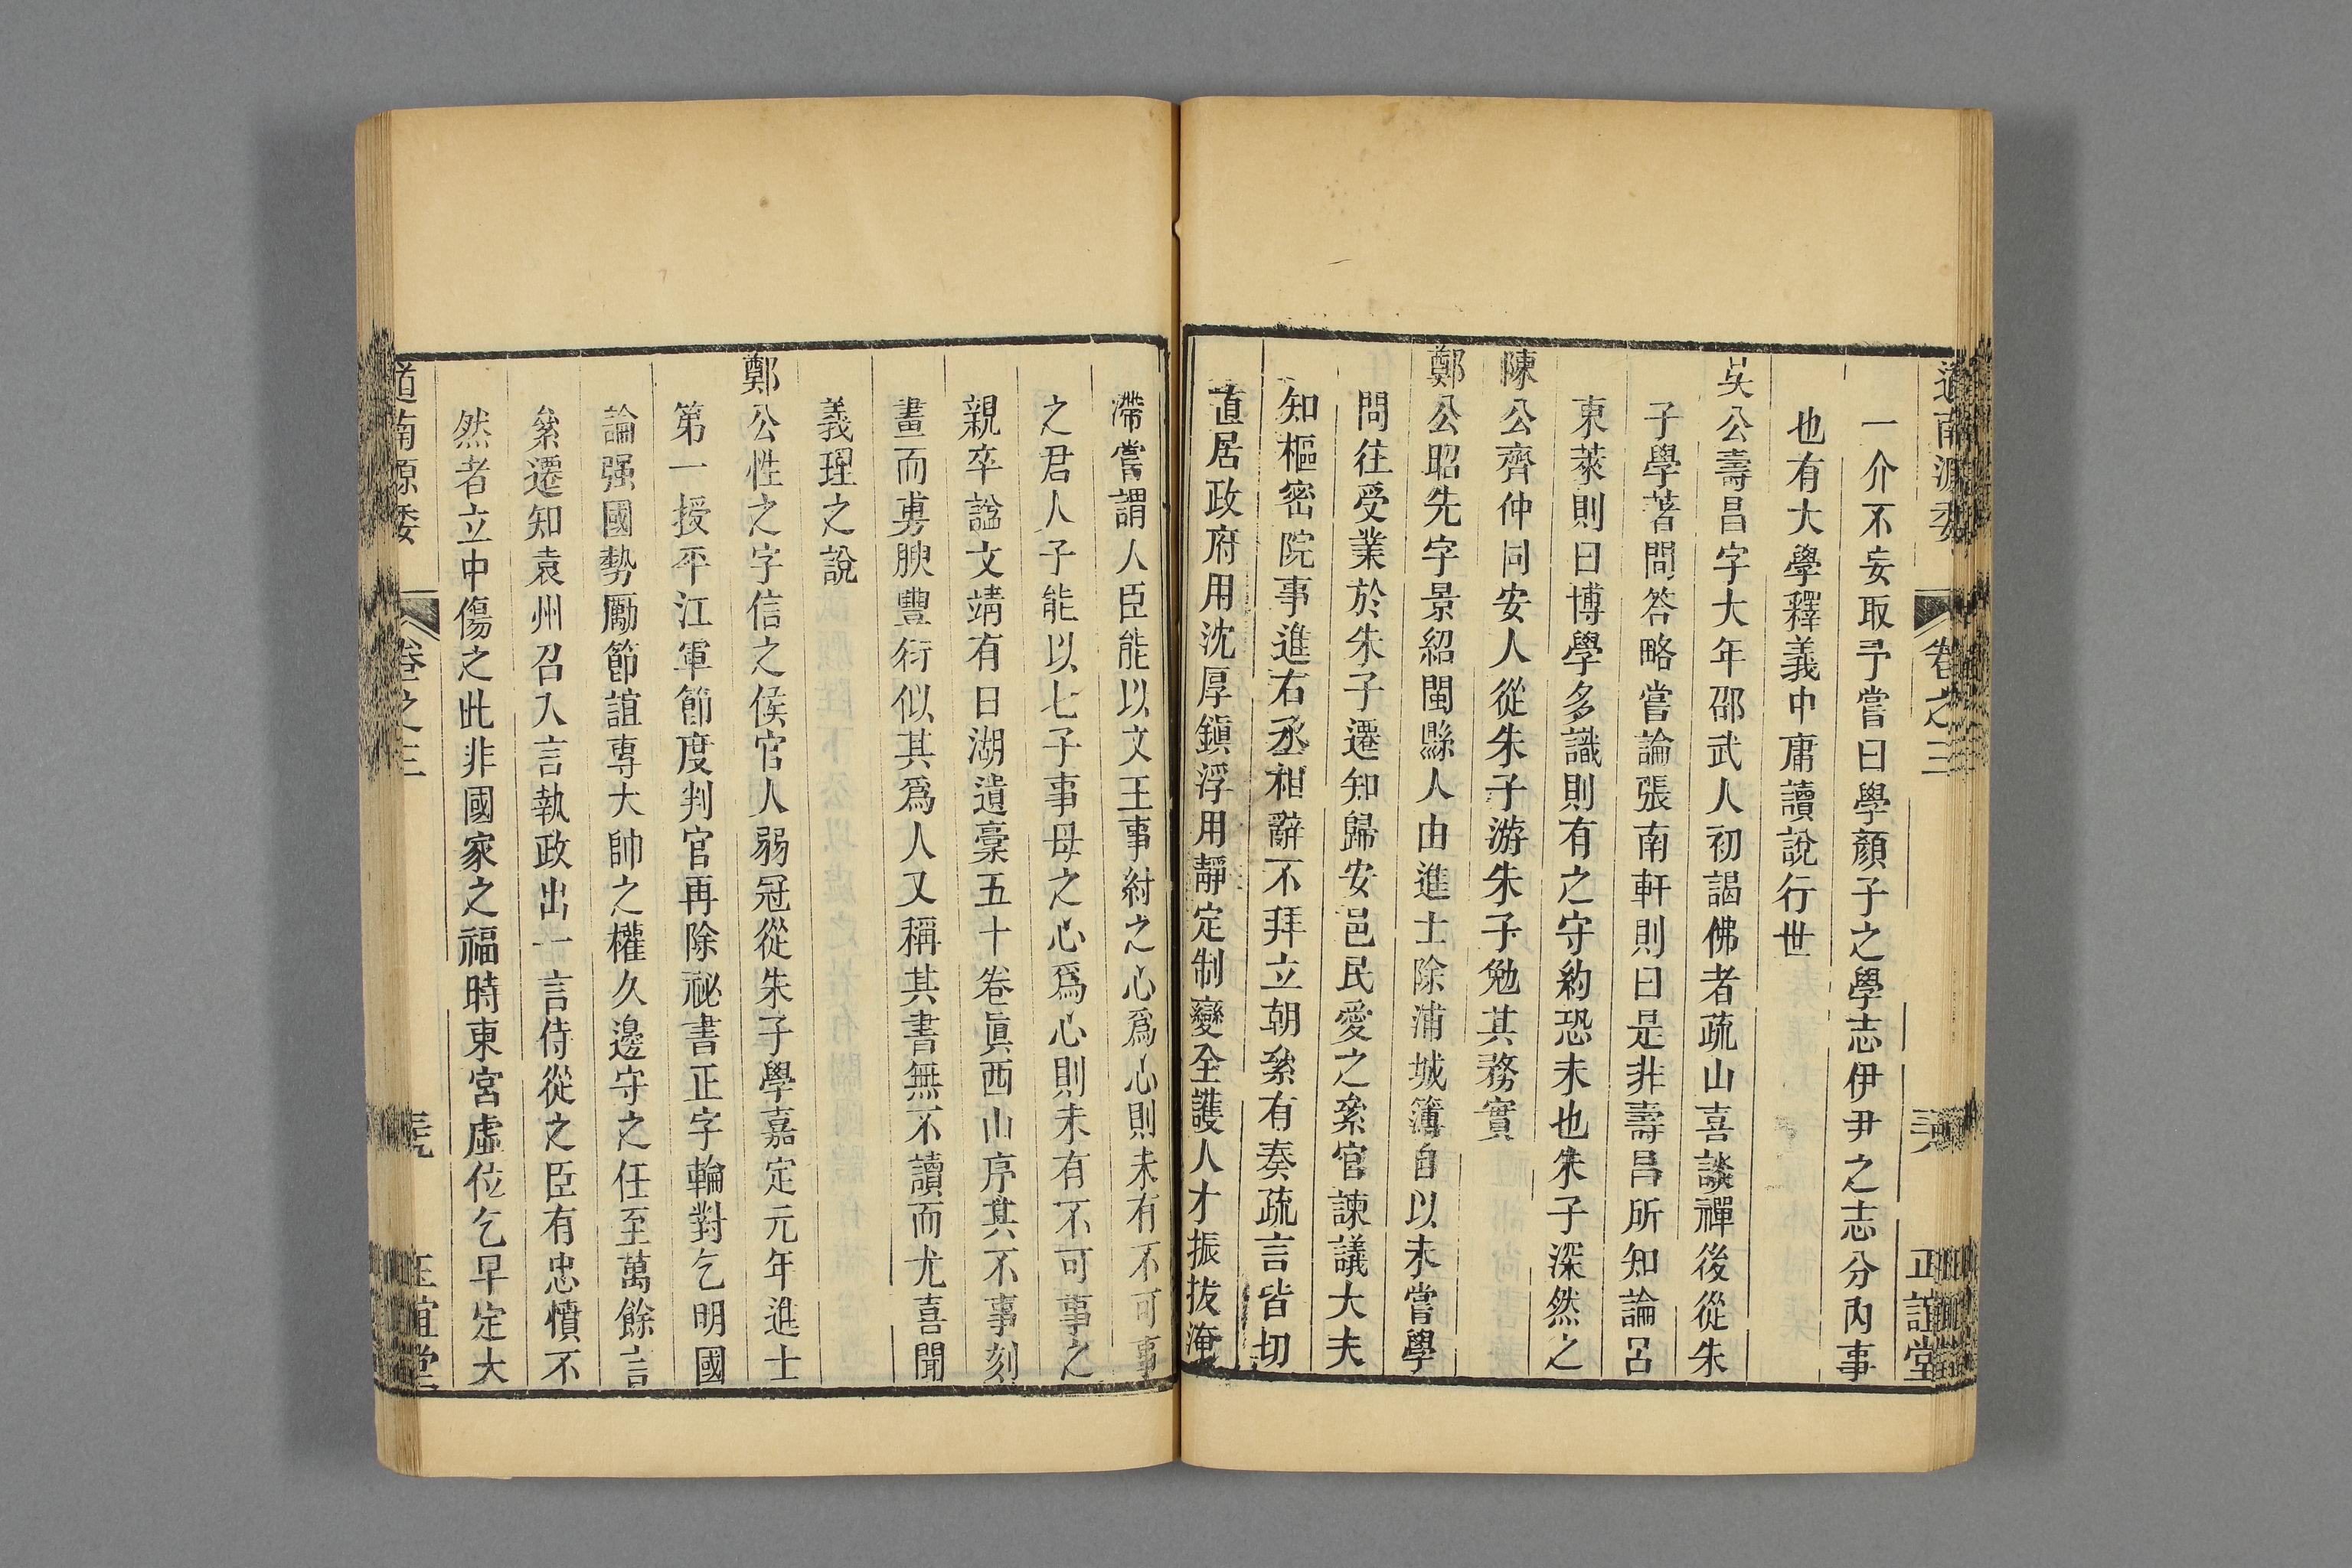 道南源委 卷之三 正誼堂
一介不妄取予嘗曰學顏子之學志伊尹之志分內事
也有大學釋義中庸讀說行世
吳公壽昌字大年邵武人初謁佛者疏山喜談禪後從朱
子學著問答略嘗論張南軒則曰是非壽昌所知論呂
東萊則曰博學多識則有之守約恐未也朱子深然之
陳公齊仲同安人從朱子游朱子勉其務實
鄭公昭先字景紹閩縣人由進士除浦城簿自以未嘗學
問往受業於朱子遷知歸安邑民愛之絫官諫議大夫
知樞密院事進右丞相辭不拜立朝絫有奏疏言皆切
直居政府用沈厚鎭浮用靜定制變全護人才振拔淹
滯嘗謂人臣能以文王事紂之心爲心則未有不可事
之君人子能以七子事母之心爲心則未有不可事之
親卒諡文靖有日湖遺稾五十卷眞西山序其不事刻
畫而旉腴豐衍似其爲人又稱其書無不讀而尤喜聞
義理之說
鄭公性之字信之侯官人弱冠從朱子學嘉定元年進士
第一授平江軍節度判官再除祕書正字輪對乞明國
論强國勢勵節誼專大帥之權久邊守之任至萬餘言
絫遷知袁州召入言執政出一言侍從之臣有忠憤不
然者立中傷之此非國家之福時東宮虛位乞早定大
道南源委 卷之三 正誼堂